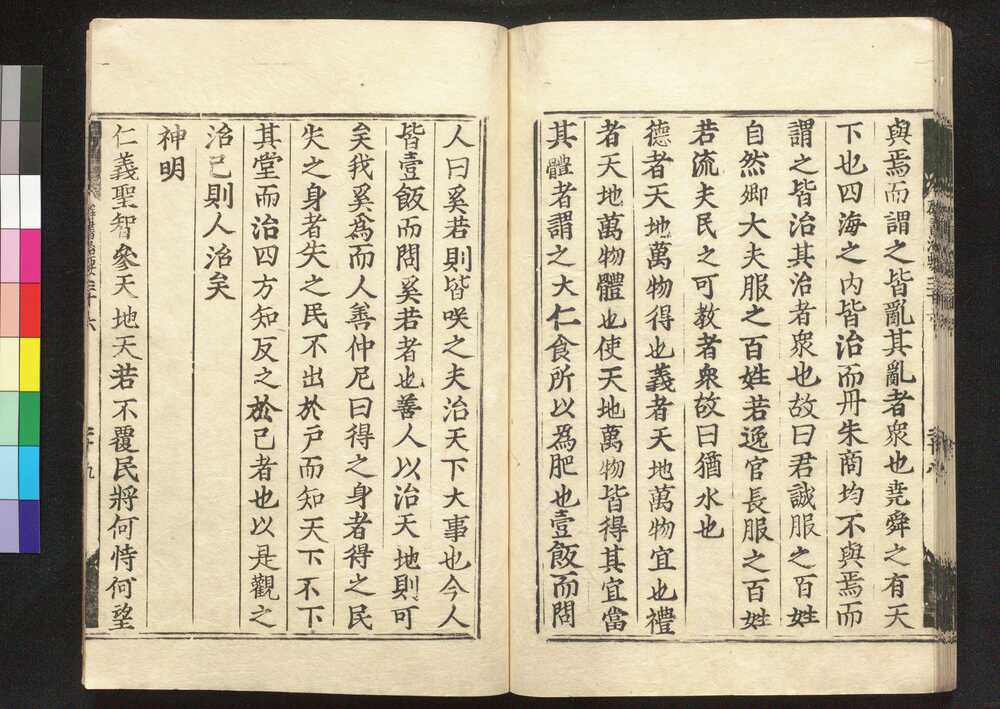 與焉而謂之皆亂其亂者衆也堯舜之有天
下也四海之内皆治而丹朱商均不與焉而
謂之皆治其治者衆也故曰君誠服之百姓
自然卿大夫服之百姓若逸官長服之百姓
若流夫民之可教者衆故曰猶水也
德者天地萬物得也義者天地萬物宜也禮
者天地萬物體也使天地萬物皆得其宜當
其體者謂之大仁食所以爲肥也壹飯而問
人曰奚若則皆咲之夫治天下大事也今人
皆壹飯而問奚若者也善人以治天地則可
矣我奚爲而人善仲尼曰得之身者得之民
失之身者失之民不出於戸而知天下不下
其堂而治四方知反之於己者也以是觀之
治己則人治矣
神明
仁義聖智參天地天若不覆民將何恃何望
群書治要三十六
三十九